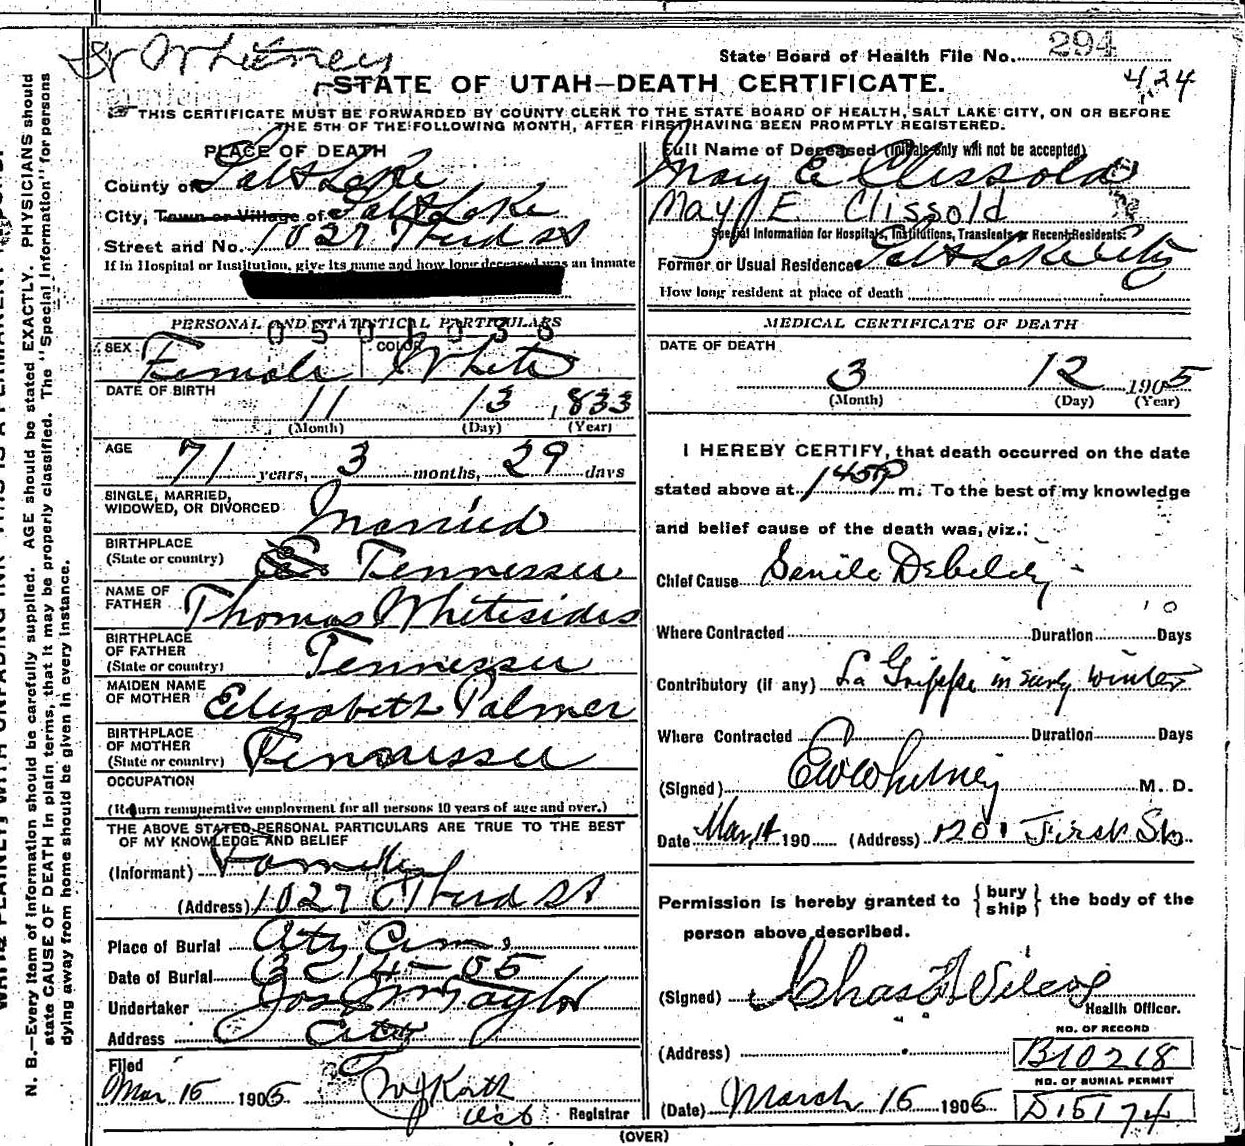 Dr Whitney
State Board of Health File No. 294
424
STATE OF UTAH—DEATH CERTIFICATE.
THIS CERTIFICATE MUST BE FORWARDED BY COUNTY CLERK TO THE STATE BOARD OF HEALTH, SALT LAKE CITY, ON OR BEFORE
THE 5TH OF THE FOLLOWING MONTH, AFTER FIRST HAVING BEEN PROMPTLY REGISTERED.
PLACE OF DEATH
County of Salt Lake
City, Town or Village of Salt Lake
Street and No. 1027 Third St
If in Hospital or Institution, give its name and how long deceased was an inmate
PERSONAL AND STATISTICAL PARTICULARS
SEX Female COLOR White
DATE OF BIRTH 11 13 1833
(Month) (Day) (Year)
AGE 71 years, 3 months, 29 days
SINGLE, MARRIED,
WIDOWED, OR DIVORCED Married
BIRTHPLACE
(State or country) Tennessee
NAME OF
FATHER Thomas Whitesides
BIRTHPLACE
OF FATHER
(State or country) Tennessee
MAIDEN NAME
OF MOTHER Elizabeth Palmer
BIRTHPLACE
OF MOTHER
(State or country) Tennessee
OCCUPATION
(Return remunerative employment for all persons 10 years of age and over.)
THE ABOVE STATED PERSONAL PARTICULARS ARE TRUE TO THE BEST
OF MY KNOWLEDGE AND BELIEF
(Informant)
(Address) 1027 Third St
Place of Burial City Cem.
Date of Burial 3-14-05
Undertaker Jos Taylor
Address City
Filed
Mar 15 1905
Registrar
(OVER)
Full Name of Deceased (Initials only will not be accepted)
Mary E Clissold
May E Clissold
Special Information for Hospitals, Institutions, Transients or Recent Residents:
Former or Usual Residence Salt Lake City
How long resident at place of death
MEDICAL CERTIFICATE OF DEATH
DATE OF DEATH
3 12 1905
(Month) (Day) (Year)
I HEREBY CERTIFY, that death occurred on the date
stated above at 145 P m. To the best of my knowledge
and belief cause of the death was, viz.:
Chief Cause Senile Debility
Where Contracted Duration Days
Contributory (if any) La Grippe in early winter
Where Contracted Duration Days
(Signed) E W Whitney M. D.
Date Mar 14 190 (Address) 1201 First St.
Permission is hereby granted to { bury
ship } the body of the
person above described.
(Signed) Chas Wilcox
Health Officer.
NO. OF RECORD
(Address) B10218
NO. OF BURIAL PERMIT
(Date) March 15 1905 D15174
N. B.—Every item of information should be carefully supplied. AGE should be stated EXACTLY. PHYSICIANS should
state CAUSE OF DEATH in plain terms, that it may be properly classified. The "Special Information" for persons
dying away from home should be given in every instance.